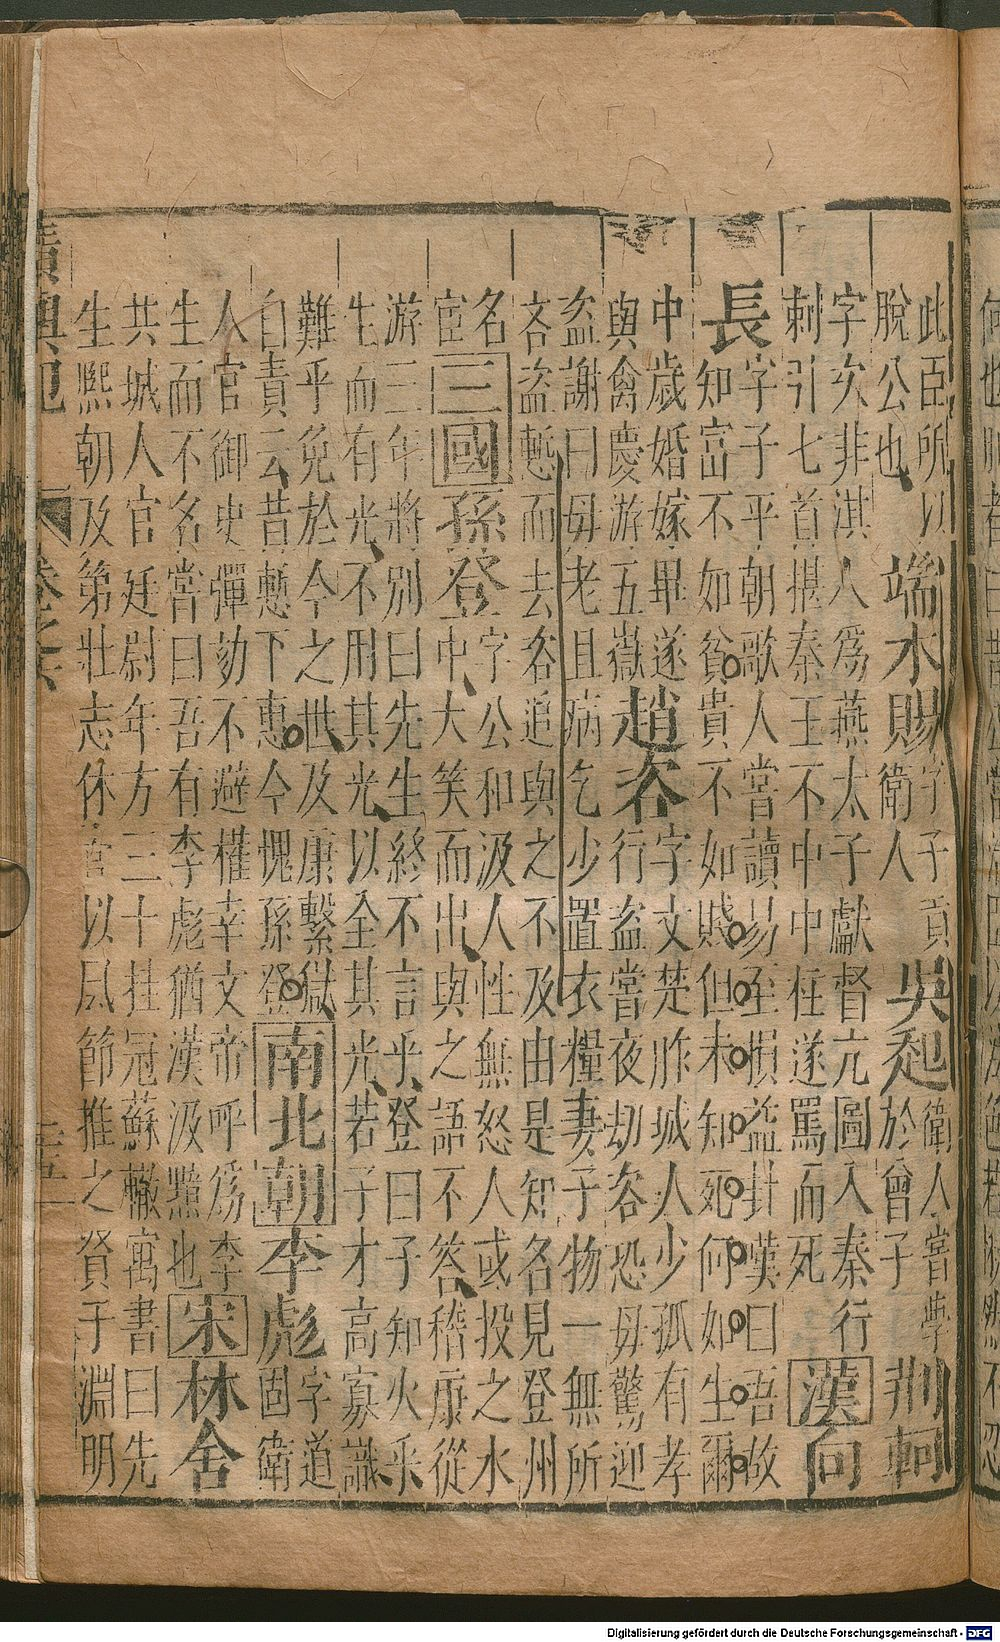 此臣所以
脫公也
端木賜
字子貢
衛人
吳起
衛人嘗學
於曾子
荆軻
字次非淇人爲燕太子獻督亢圖入秦行
刺引七首揕秦王不中中柱遂罵而死
漢向
長
字子平朝歌人嘗讀易至損益卦嘆曰吾故
知富不如貧貴不如賤但未知死何如生爾
中歲婚嫁畢遂
與禽慶游五嶽
趙咨
字文楚胙城人少孤有孝
行盜嘗夜劫咨恐母驚迎
盗謝曰母老且病乞少置衣糧妻子物一無所
咨盗慙而去咨追與之不及由是知名見登州
名
宦
三國
孫登
字公和汲人性無怒人或投之水
中大笑而出與之語不答嵇康從
游三年將別曰先生終不言乎登曰子知火乎
生而有光不用其光以全其光若子才高寡識
難乎免於今之世及康繫獄
自責云昔慙下惠今愧孫登
南北朝
李彪
字道
固衛
人官御史彈劾不避權幸文帝呼爲李
生而不名嘗曰吾有李彪猶漢汲黯也
宋林舍
共城人官廷尉年方三十挂冠蘇轍寓書曰先
生熙朝及第壯志休官以風節推之賢于淵明
廣輿記
卷之六
Digitalisierung gefördert durch die Deutsche Forschungsgemeinschaft - DFG